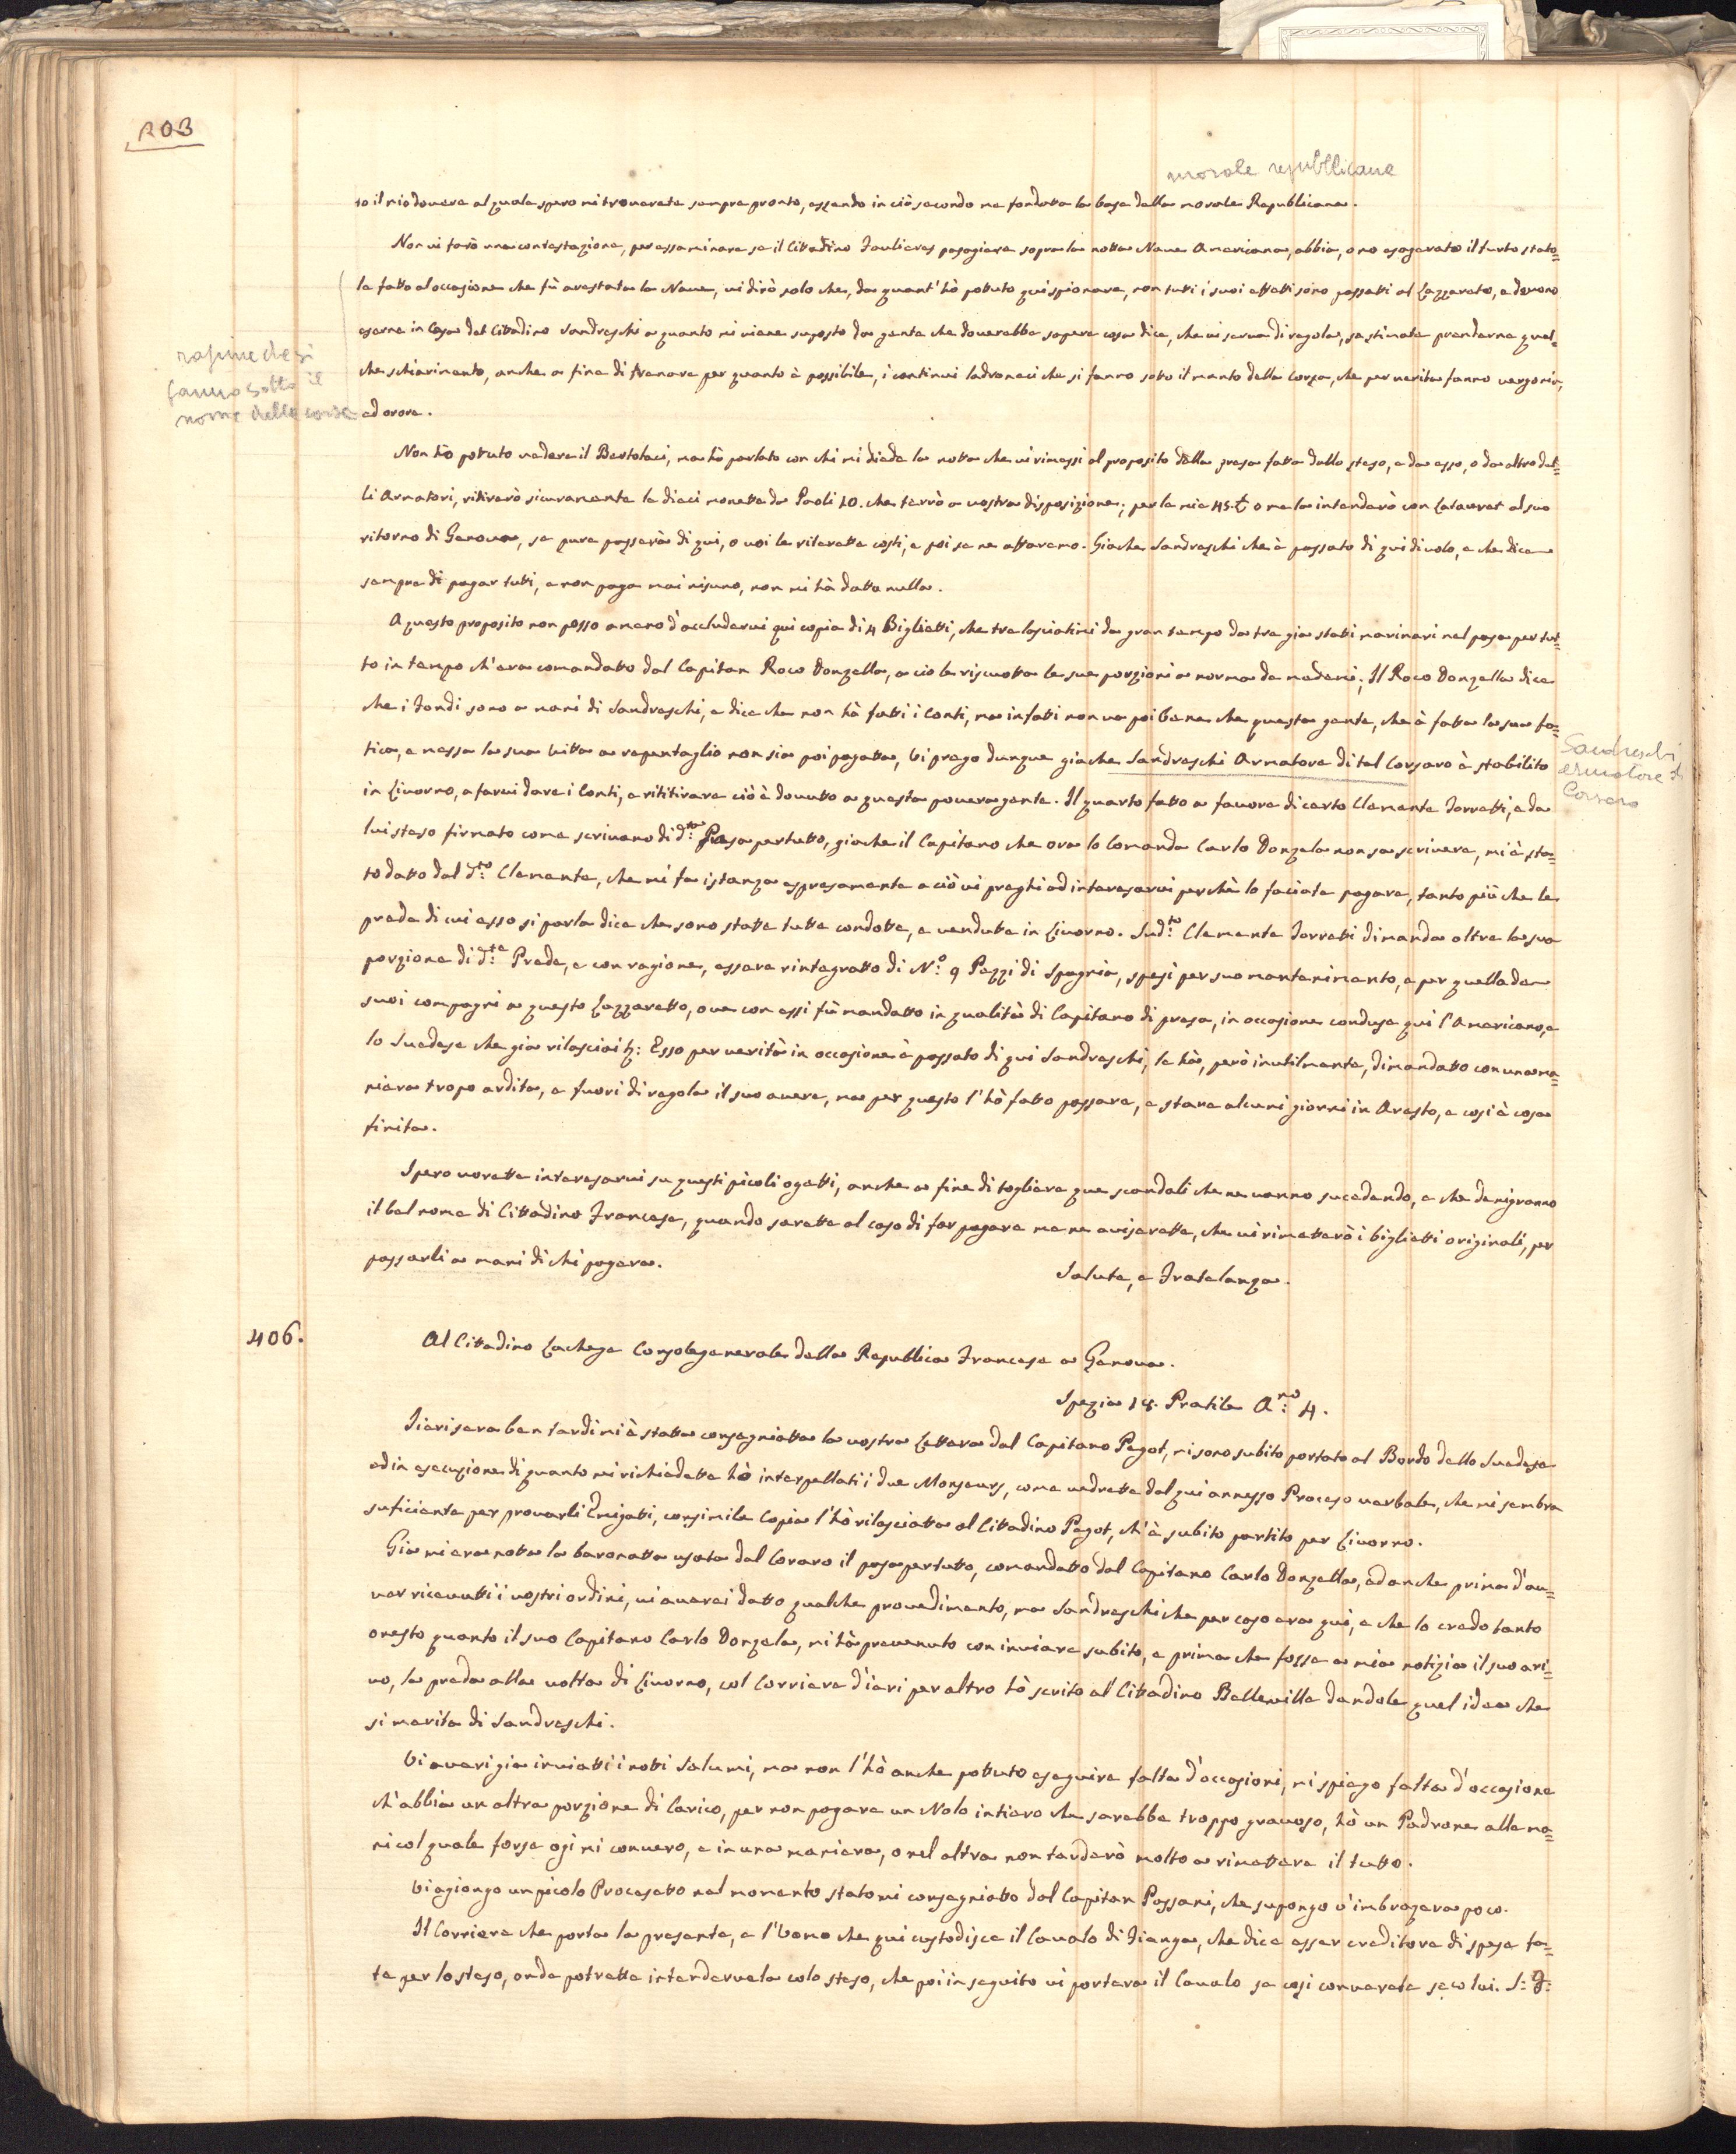 203
morale republlicane
to il mio dovere al quale spero mi troverete sempre pronto, essendo in ciò secondo me fondatta la base della morale Republicana.
Non vi farò una contestazione, per essaminare se il Cittadino Faulieres pasagiere sopra la notta Nave Americana, abbia, o no esagerato il furto stato=
le fatto al occasione che fù arestata la Nave, vi dirò solo che, da quant'hò pottuto qui spionare, non tutti i suoi effetti sono passatti al Lazzareto, e devono
eserne in Casa del Cittadino Sandreschi a quanto mi viene suposto da gente che doverebbe sapere cosa dice, che vi serva di regola, se stimate prenderne qual=
che schiarimento, anche a fine di frenare per quanto è possibile, i continui ladroneci che si fanno soto il manto della Corsa, che per verita fanno vergonia,
ed orore.
rapine che si
fanno sotto il
nome della corsa
Non hò potuto vedere il Bertolaci, ma hò parlato con chi mi diede la notta che vi rimessi al proposito della presa fatta dallo steso, e da esso, o da altro del=
li Armatori, ritirerò sicuramente le dieci monette da Paoli 10. che terrò a vostra disposizione; per le mie 45.₶ o me la intenderò con Cataveret al suo
ritorno di Genova, se pure passerà di qui, o voi le riterette costi, e poi se ne attaremo. Giache Sandreschi che è passato di qui di volo, e che dice
sempre di pagar tutti, e non paga mai nisuno, non mi hà datta nulla.
A questo proposito non posso a meno d'accludervi qui copia di 4 Biglietti, che tre lasciatimi da gran tempo da tre gia stati marinari nel pasa per tut=
to in tempo ch'era comandatto dal Capitan Roco Donzella, a cio le riscuotta le sue porzioni a norma de medemi; Il Roco Donzella dice
che i Fondi sono a mani di Sandreschi, e dice che non hà fatti i Conti, ma infatti non va poi bene che questa gente, che à fatta la sua fa=
tica, e messa la sua vitta a repentaglio non sia poi pagatta, vi prego dunque giache Sandreschi Armatore di tal Corsaro è stabilito
Sandreschi
armatore di
Corsaro
in Livorno, a farvi dare i Conti, e rititirare ciò è dovutto a questa povera gente. Il quarto fatto a favore di certo Clemente Ferretti, e da
lui steso firmato come scrivano di d.to Pasa per tutto, giache il Capitano che ora lo Comanda Carlo Donzela non sa scrivere, mi è sta=
to datto dal d.to Clemente, che mi fa istanza espresamente a ciò vi preghi ad interesarvi perchè lo faciate pagare, tanto più che le
prede di cui esso si parla dice che sono statte tutte condotte, e vendute in Livorno. Sud.to Clemente Ferretti dimanda oltre la sua
porzione di d.te Prede, e con ragione, essere rintegratto di N.o 9 Pezzi di Spagnia, spesi per suo mantenimento, e per quello de
suoi compagni a questo Lazzaretto, ove con essi fù mandatto in qualità di Capitano di presa, in occasione conduse qui l'Americano, e
lo Suedese che gia rilasciai: Esso per verità in occasione è passato di qui Sandreschi, le hà, però inutilmente, dimandatto con una ma=
niera tropo ardita, e fuori di regola il suo avere, ma per questo l'hò fatto passare, e stare alcuni giorni in Aresto, e cosi è cosa
finita.
Spero vorette interesarvi su questi picoli ogetti, anche a fine di togliere que scandali che ne vanno sucedendo, e che denigranno
il bel nome di Cittadino Francese, quando sarette al caso di far pagare me ne avisarette, che vi rimetterò i biglietti originali, per
passarli a mani di chi pagera.
Salute, e Fratelanza.
406.
Al Cittadino Lachese Consolegenerale della Republica Francese a Genova.
Spezia 14. Pratile A.no 4.
Iierisera ben tardi mi è statta consegniatta la vostra Lettera dal Capitano Pagot, mi sono subito portato al Bordo dello Suedese
ed in esecuzione di quanto mi richiedette hò interpellati i due Monseurs, come vedrette dal qui annesso Proceso verbale, che mi sembra
suficiente per provarli Emigati, consimile Copia l'hò rilasciatta al Cittadino Pagot, ch'è subito partito per Livorno.
Gia mi era notta la baronatta usata dal Coraro il pasapertutto, comandatto dal Capitano Carlo Donzella, ed anche prima d'av=
ver ricevutti i vostri ordini, vi averei datto qualche provedimento, ma Sandreschi che per caso era qui, e che lo credo tanto
onesto quanto il suo Capitano Carlo Donzela, mi hà prevenuto con inviare subito, e prima che fosse a mia notizia il suo ari=
vo, la preda alla voltta di Livorno, col Corriere d'ieri per altro hò scrito al Cittadino Belleville dandole quel idea che
si merita di Sandreschi.
Vi averi gia inviatti i notti Salumi, ma non l'hò anche pottuto eseguire falta d'occasioni, mi spiego falta d'occasione
ch'abbia un altra porzione di Carico, per non pagare un Nolo intiero che sarebbe troppo gravoso, hò un Padrone alle ma=
ni col quale forse ogi mi convero, e in una maniera, o nel altra non tarderò molto a rimettere il tutto.
Vi agiongo un picolo Procesetto nel momento statomi consegniatto dal Capitan Passani, che supongo v'imbrazera poco.
Il Corriere che porta la presente, e l'Uomo che qui custodisce il Cavalo di Fianga, che dice esser creditore di spese fa=
te per lo steso, onde potrette intendervela colo steso, che poi in seguito vi portera il Cavalo se cosi converete seco lui. S: F: